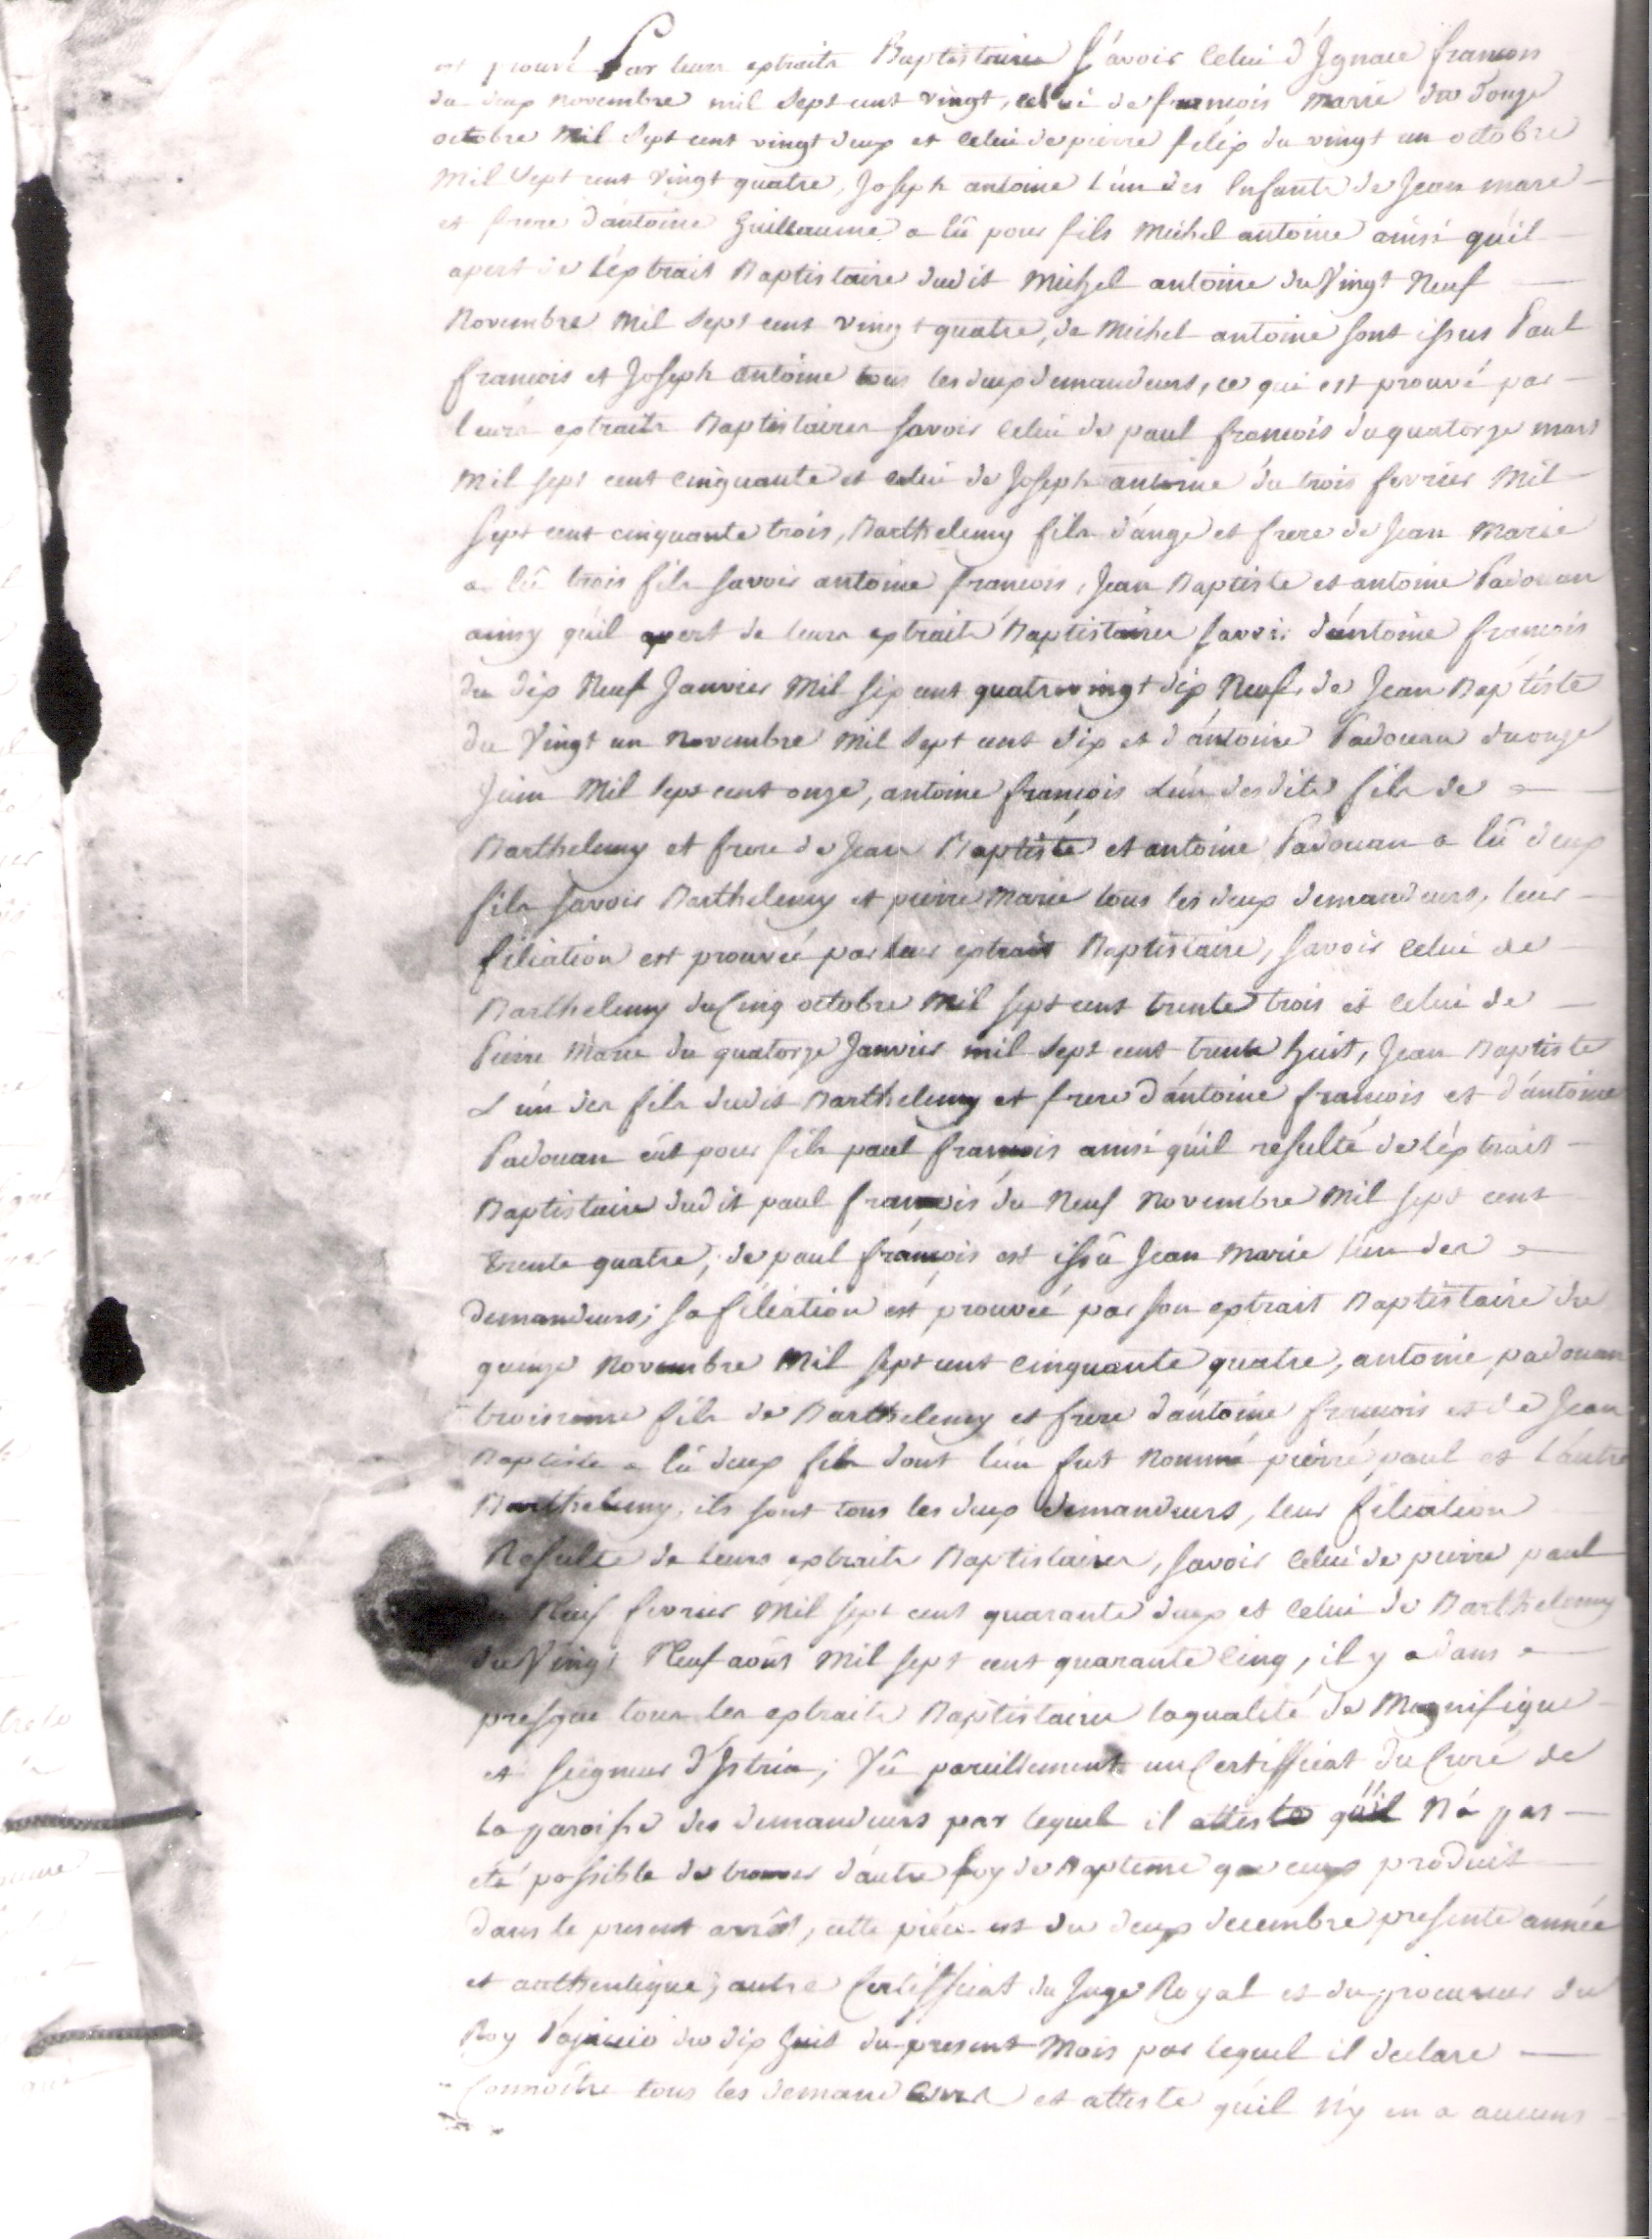 est prouvé Par leurs extraits Baptistaires Sçavoir Celui d'Ignace francois
du deux novembre mil Sept cent vingt, celui de francois marie du douze
octobre Mil Sept cent vingt deux et Celui de pierre félix du vingt un octobre
Mil Sept cent vingt quatre, Joseph antoine l'un des Enfants de Jean marc
et frere d'antoine Guillaume a Eû pour fils Michel antoine ainsi qu'il
apert de l'extrait Baptistaire dudit Michel antoine du Vingt Neuf
Novembre Mil Sept cent vingt quatre, de Michel antoine sont issus Paul
francois et Joseph antoine tous les deux demandeurs, ce qui est prouvé par
leurs extraits Baptistaires savoir Celui de paul francois du quatorze mars
Mil sept cent Cinquante et celui de Joseph antoine du trois fevrier Mil
Sept cent cinquante trois, Barthelemy fils d'ange et frere de Jean Marie
a Eû trois fils savoir antoine francois, Jean Baptiste et antoine Padouan
ainsy qu'il apert de leurs extraits Baptistaires savoir d'antoine francois
du dix Neuf Janvier Mil six cent quatre vingt dix Neuf, de Jean Baptiste
du Vingt un Novembre Mil Sept cent dix et d'antoine Padouan du onze
Juin Mil Sept cent onze, antoine francois L'un desdits fils de
Barthelemy et frere de Jean Baptiste et antoine Padouan a Eû deux
fils savoir Barthelemy et pierre Marie tous les deux demandeurs, leur
filiation est prouvée par leur extrait Baptistaire, savoir Celui de
Barthelemy du Cinq octobre Mil sept cent trente trois et Celui de
Pierre Marie du quatorze Janvier mil Sept cent trente huit, Jean Baptiste
L'un des fils dudit Barthelemy et frere d'antoine francois et d'antoine
Padouan eût pour fils paul francois ainsi qu'il resulte de l'extrait
Baptistaire dudit paul francois du Neuf Novembre Mil sept cent
trente quatre; de paul francois est issû Jean Marie l'un des
demandeurs; sa filiation est prouvée par son extrait Baptistaire du
quinze Novembre Mil sept cent Cinquante quatre, antoine padouan
troisieme fils de Barthelemy et frere d'antoine francois et de Jean
Baptiste a Eû deux fils dont l'un fut Nommé pierre paul et L'autre
Barthelemy, ils sont tous les deux demandeurs, leur filiation
Resulte de leurs extraits Baptistaires, savoir Celui de pierre paul
Neuf fevrier Mil sept cent quarante deux et Celui de Barthelemy
du Vingt Neuf août Mil sept cent quarante Cinq, il y a dans
presque tous les extraits Baptistaires la qualité de Magnifique
et Seigneur d'Istria; Vû pareillement un Certifficat du Curé de
la paroisse des demandeurs par lequel il atteste qu'il N'a pas
été possible de trouver d'autre foy de Bapteme que ceux produit
dans le present arrêt, cette piéce est du deux decembre presente année
et authentique; autre Certifficat du Juge Royal et du procureur du
Roy d'ajaccio du dix huit du present Mois par lequel il declare
Connoitre tous les demandeurs et atteste qu'il N'y en a aucuns